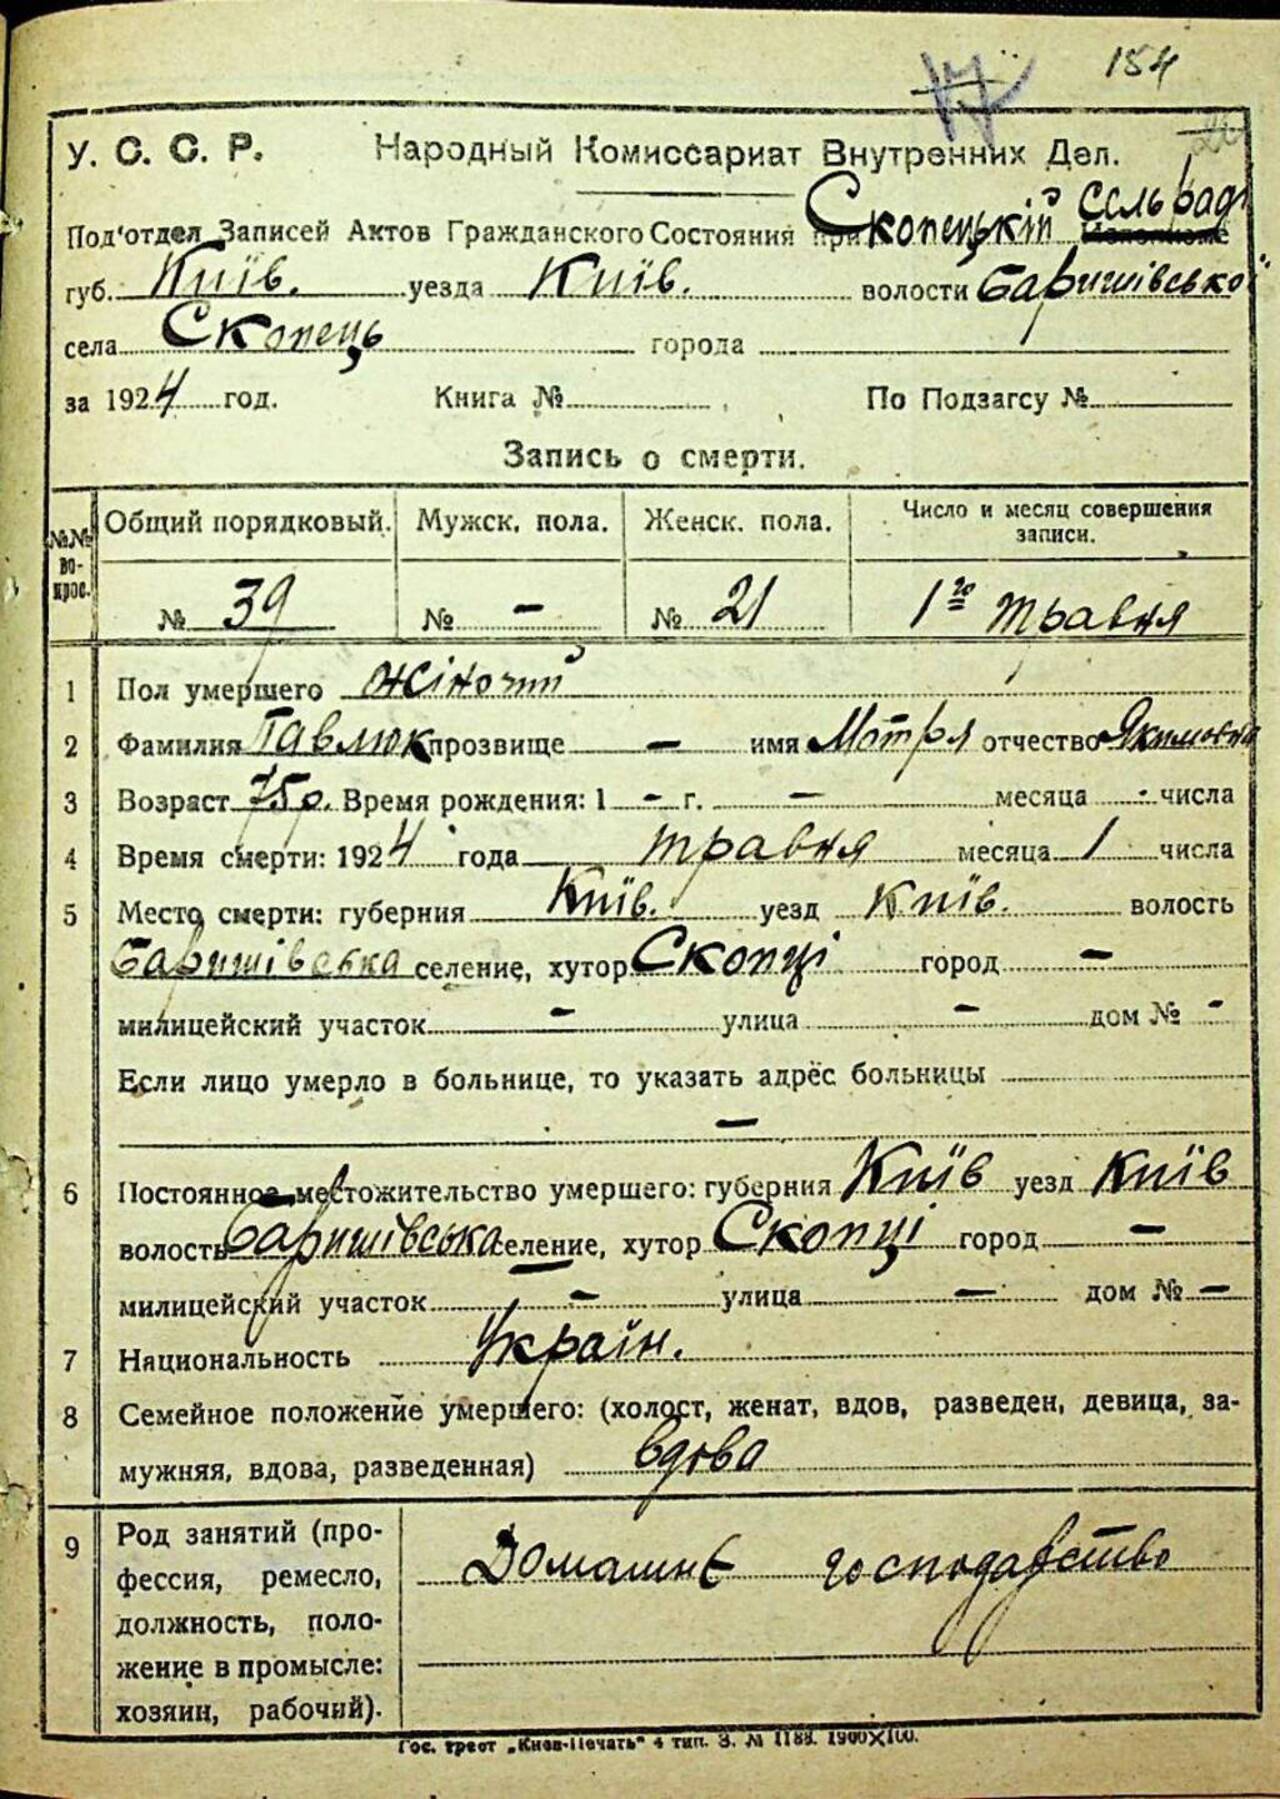 154
У. С. С. Р. Народный Комиссариат Внутренних Дел.
Под'отдел Записей Актов Гражданского Состояния при Скопецькій Сельраді
губ. Київ. уезда Київ. волости Баришівської
села Скопець города
за 1924 год. Книга № По Подзагсу №
Запись о смерти.
№№ вопрос. Общий порядковый. Мужск. пола. Женск. пола. Число и месяц совершения записи.
№ 39 № — № 21 1го травня
1 Пол умершего жіночий
2 Фамилия Павлюк прозвище — имя Мотря отчество Якимовна
3 Возраст 75 р. Время рождения: 1 - г. — месяца - числа
4 Время смерти: 1924 года травня месяца 1 числа
5 Место смерти: губерния Київ. уезд Київ. волость
Баришівська селение, хутор Скопці город —
милицейский участок — улица — дом № -
Если лицо умерло в больнице, то указать адрес больницы
—
6 Постоянное местожительство умершего: губерния Київ уезд Київ
волость Баришівська селение, хутор Скопці город —
милицейский участок — улица — дом № —
7 Национальность Україн.
8 Семейное положение умершего: (холост, женат, вдов, разведен, девица, за-
мужняя, вдова, разведенная) вдова
9 Род занятий (про-
фессия, ремесло,
должность, поло-
жение в промысле:
хозяин, рабочий).
Домашнє господарство
Гос. трест „Киев-Печать" 4 тип. З. № 1188. 1900×100.